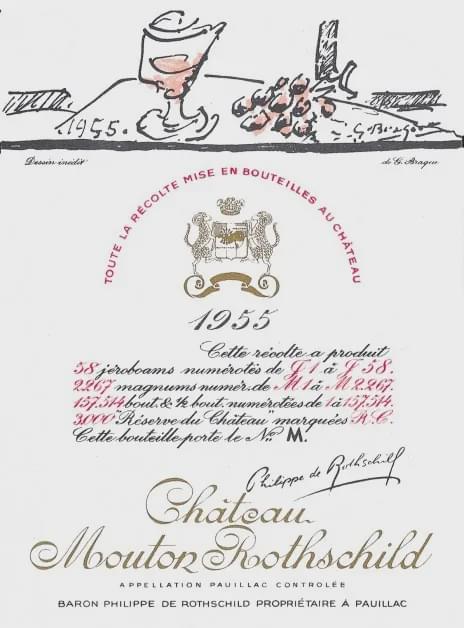 1955.
G. Braque
Dessin inédit
de G. Braque
TOUTE LA RÉCOLTE MISE EN BOUTEILLES AU CHÂTEAU
1955
Cette récolte a produit
58 jéroboams numérotés de J 1 à J 58.
2.267 magnums numér. de M 1 à M 2.267.
157.514 bout. & ½ bout. numérotées de 1 à 157.514.
3.000 "Réserve du Château" marquées R.C.
Cette bouteille porte le No. M.
Philippe de Rothschild
Château
Mouton Rothschild
APPELLATION PAUILLAC CONTROLÉE
BARON PHILIPPE DE ROTHSCHILD PROPRIÉTAIRE À PAUILLAC